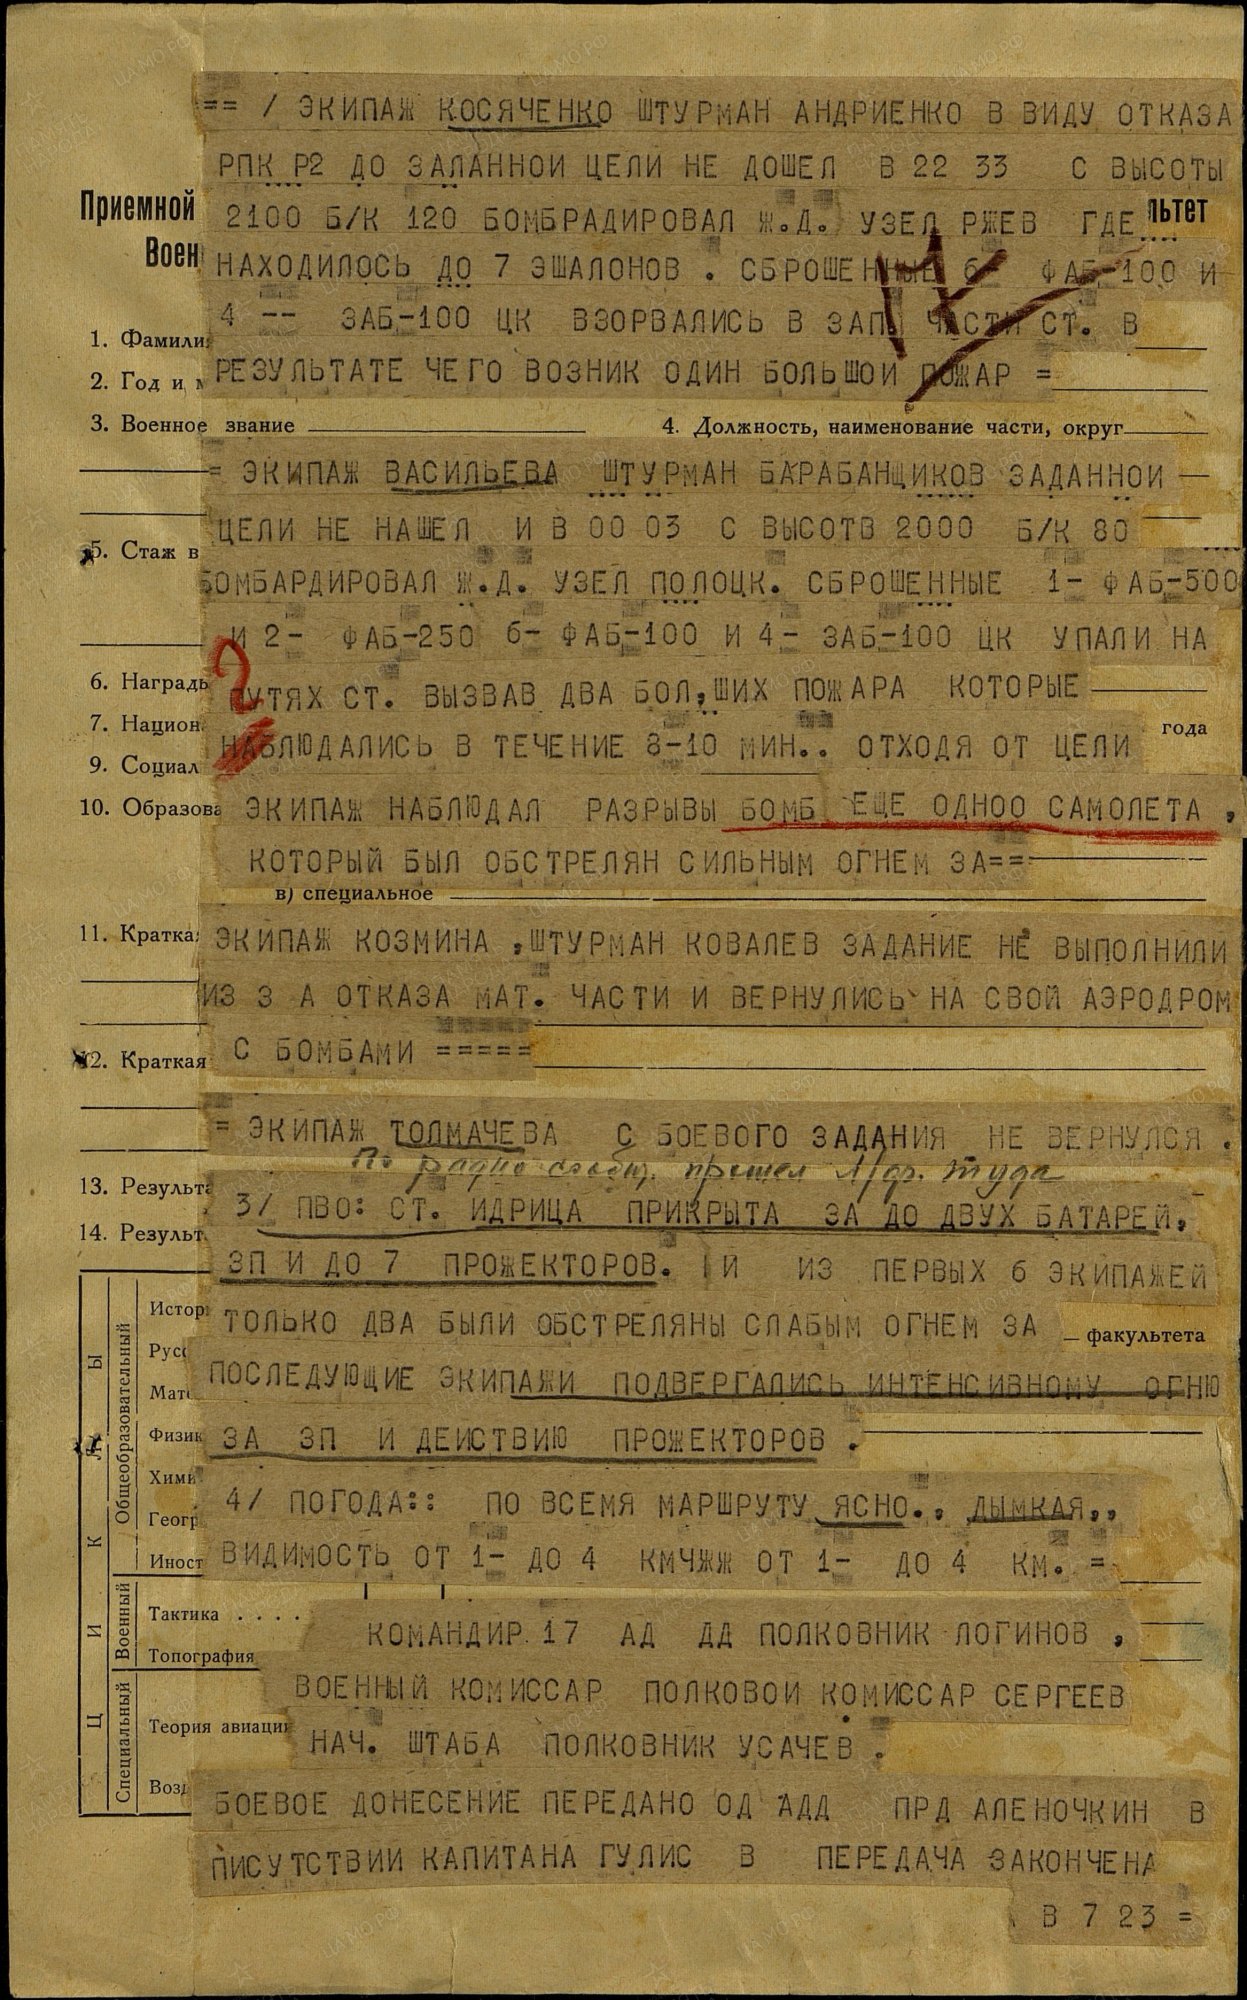 == / ЭКИПАЖ КОСЯЧЕНКО ШТУРМАН АНДРИЕНКО В ВИДУ ОТКАЗА
РПК Р2 ДО ЗАЛАННОИ ЦЕЛИ НЕ ДОШЕЛ В 22 33 С ВЫСОТЫ
Приемной
льтет
2100 Б/К 120 БОМБРАДИРОВАЛ Ж.Д. УЗЕЛ РЖЕВ ГДЕ
Воен
НАХОДИЛОСЬ ДО 7 ЭШАЛОНОВ . СБРОШЕННЫЕ 6 ФАБ-100 И
4 -- ЗАБ-100 ЦК ВЗОРВАЛИСЬ В ЗАП. ЧАСТИ СТ. В
1. Фамили
РЕЗУЛЬТАТЕ ЧЕГО ВОЗНИК ОДИН БОЛЬШОИ ПОЖАР =
2. Год и м
3. Военное звание
4. Должность, наименование части, округ
= ЭКИПАЖ ВАСИЛЬЕВА ШТУРМАН БАРАБАНЩИКОВ ЗАДАННОИ
ЦЕЛИ НЕ НАШЕЛ И В 00 03 С ВЫСОТВ 2000 Б/К 80
5. Стаж в
БОМБАРДИРОВАЛ Ж.Д. УЗЕЛ ПОЛОЦК. СБРОШЕННЫЕ 1- ФАБ-500
И 2- ФАБ-250 6- ФАБ-100 И 4- ЗАБ-100 ЦК УПАЛИ НА
2
6. Награды
ПУТЯХ СТ. ВЫЗВАВ ДВА БОЛ,ШИХ ПОЖАРА КОТОРЫЕ
7. Национ
года
НАБЛЮДАЛИСЬ В ТЕЧЕНИЕ 8-10 МИН.. ОТХОДЯ ОТ ЦЕЛИ
9. Социал
10. Образова
ЭКИПАЖ НАБЛЮДАЛ РАЗРЫВЫ БОМБ ЕЩЕ ОДНОО САМОЛЕТА ,
КОТОРЫЙ БЫЛ ОБСТРЕЛЯН СИЛЬНЫМ ОГНЕМ ЗА==
в) специальное
11. Кратка
ЭКИПАЖ КОЗМИНА ,ШТУРМАН КОВАЛЕВ ЗАДАНИЕ НЕ ВЫПОЛНИЛИ
ИЗ З А ОТКАЗА МАТ. ЧАСТИ И ВЕРНУЛИСЬ НА СВОЙ АЭРОДРОМ
12. Краткая
С БОМБАМИ =====
= ЭКИПАЖ ТОЛМАЧЕВА С БОЕВОГО ЗАДАНИЯ НЕ ВЕРНУЛСЯ .
По радио сообщ. прошел туда
13. Результа
3/ ПВО: СТ. ИДРИЦА ПРИКРЫТА ЗА ДО ДВУХ БАТАРЕЙ,
14. Результ
ЗП И ДО 7 ПРОЖЕКТОРОВ. И ИЗ ПЕРВЫХ 6 ЭКИПАЖЕЙ
Истор
ТОЛЬКО ДВА БЫЛИ ОБСТРЕЛЯНЫ СЛАБЫМ ОГНЕМ ЗА
факультета
Русс
ПОСЛЕДУЮЩИЕ ЭКИПАЖИ ПОДВЕРГАЛИСЬ ИНТЕНСИВНОМУ ОГНЮ
Мате
Физик
ЗА ЗП И ДЕИСТВИЮ ПРОЖЕКТОРОВ .
Хими
4/ ПОГОДА:: ПО ВСЕМЯ МАРШРУТУ ЯСНО., ДЫМКАЯ,,
Геогр
ВИДИМОСТЬ ОТ 1- ДО 4 КМЧЖЖ ОТ 1- ДО 4 КМ. =
Иност
Тактика . . . .
КОМАНДИР 17 АД ДД ПОЛКОВНИК ЛОГИНОВ ,
Топография
ВОЕННЫЙ КОМИССАР ПОЛКОВОИ КОМИССАР СЕРГЕЕВ
Теория авиации
НАЧ. ШТАБА ПОЛКОВНИК УСАЧЕВ .
Возд
БОЕВОЕ ДОНЕСЕНИЕ ПЕРЕДАНО ОД АДД ПРД АЛЕНОЧКИН В
ПИСУТСТВИИ КАПИТАНА ГУЛИС В ПЕРЕДАЧА ЗАКОНЧЕНА
В 7 23 =
ЦИКЛЫ
Общеобразовательный
Военный
Специальный